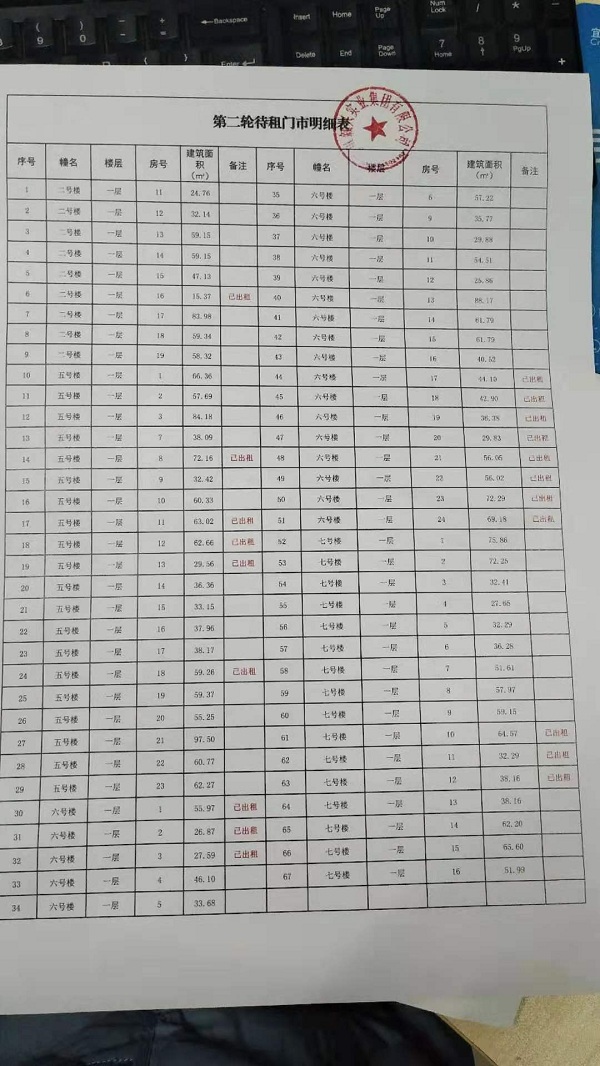 Backspace
Insert
Home
Page Up
Num Lock
Delete
End
Page Down
Enter
7 Home
8
9 PgUp
第二轮待租门市明细表
实业集团有限公司
序号 幢名 楼层 房号 建筑面积(㎡) 备注 序号 幢名 楼层 房号 建筑面积(㎡) 备注
1 二号楼 一层 11 24.76 35 六号楼 一层 6 57.22
2 二号楼 一层 12 32.14 36 六号楼 一层 9 35.77
3 二号楼 一层 13 59.15 37 六号楼 一层 10 29.88
4 二号楼 一层 14 59.15 38 六号楼 一层 11 54.51
5 二号楼 一层 15 47.13 39 六号楼 一层 12 25.86
6 二号楼 一层 16 15.37 已出租 40 六号楼 一层 13 88.17
7 二号楼 一层 17 83.98 41 六号楼 一层 14 61.79
8 二号楼 一层 18 59.34 42 六号楼 一层 15 61.79
9 二号楼 一层 19 58.32 43 六号楼 一层 16 40.52
10 五号楼 一层 1 66.36 44 六号楼 一层 17 44.10 已出租
11 五号楼 一层 2 57.69 45 六号楼 一层 18 42.90 已出租
12 五号楼 一层 3 84.18 46 六号楼 一层 19 36.38 已出租
13 五号楼 一层 7 38.09 47 六号楼 一层 20 29.83 已出租
14 五号楼 一层 8 72.16 已出租 48 六号楼 一层 21 56.05 已出租
15 五号楼 一层 9 32.42 49 六号楼 一层 22 56.02 已出租
16 五号楼 一层 10 60.33 50 六号楼 一层 23 72.29 已出租
17 五号楼 一层 11 63.02 已出租 51 六号楼 一层 24 69.18 已出租
18 五号楼 一层 12 62.66 已出租 52 七号楼 一层 1 75.86
19 五号楼 一层 13 29.56 已出租 53 七号楼 一层 2 72.25
20 五号楼 一层 14 36.36 54 七号楼 一层 3 32.41
21 五号楼 一层 15 33.15 55 七号楼 一层 4 27.65
22 五号楼 一层 16 37.96 56 七号楼 一层 5 32.29
23 五号楼 一层 17 38.17 57 七号楼 一层 6 36.28
24 五号楼 一层 18 59.26 已出租 58 七号楼 一层 7 51.61
25 五号楼 一层 19 59.37 59 七号楼 一层 8 57.97
26 五号楼 一层 20 55.25 60 七号楼 一层 9 59.15
27 五号楼 一层 21 97.50 61 七号楼 一层 10 64.57 已出租
28 五号楼 一层 22 60.77 62 七号楼 一层 11 32.29 已出租
29 五号楼 一层 23 62.27 63 七号楼 一层 12 38.16 已出租
30 六号楼 一层 1 55.97 已出租 64 七号楼 一层 13 38.16
31 六号楼 一层 2 26.87 已出租 65 七号楼 一层 14 62.20
32 六号楼 一层 3 27.59 已出租 66 七号楼 一层 15 65.60
33 六号楼 一层 4 46.10 67 七号楼 一层 16 51.99
34 六号楼 一层 5 33.68